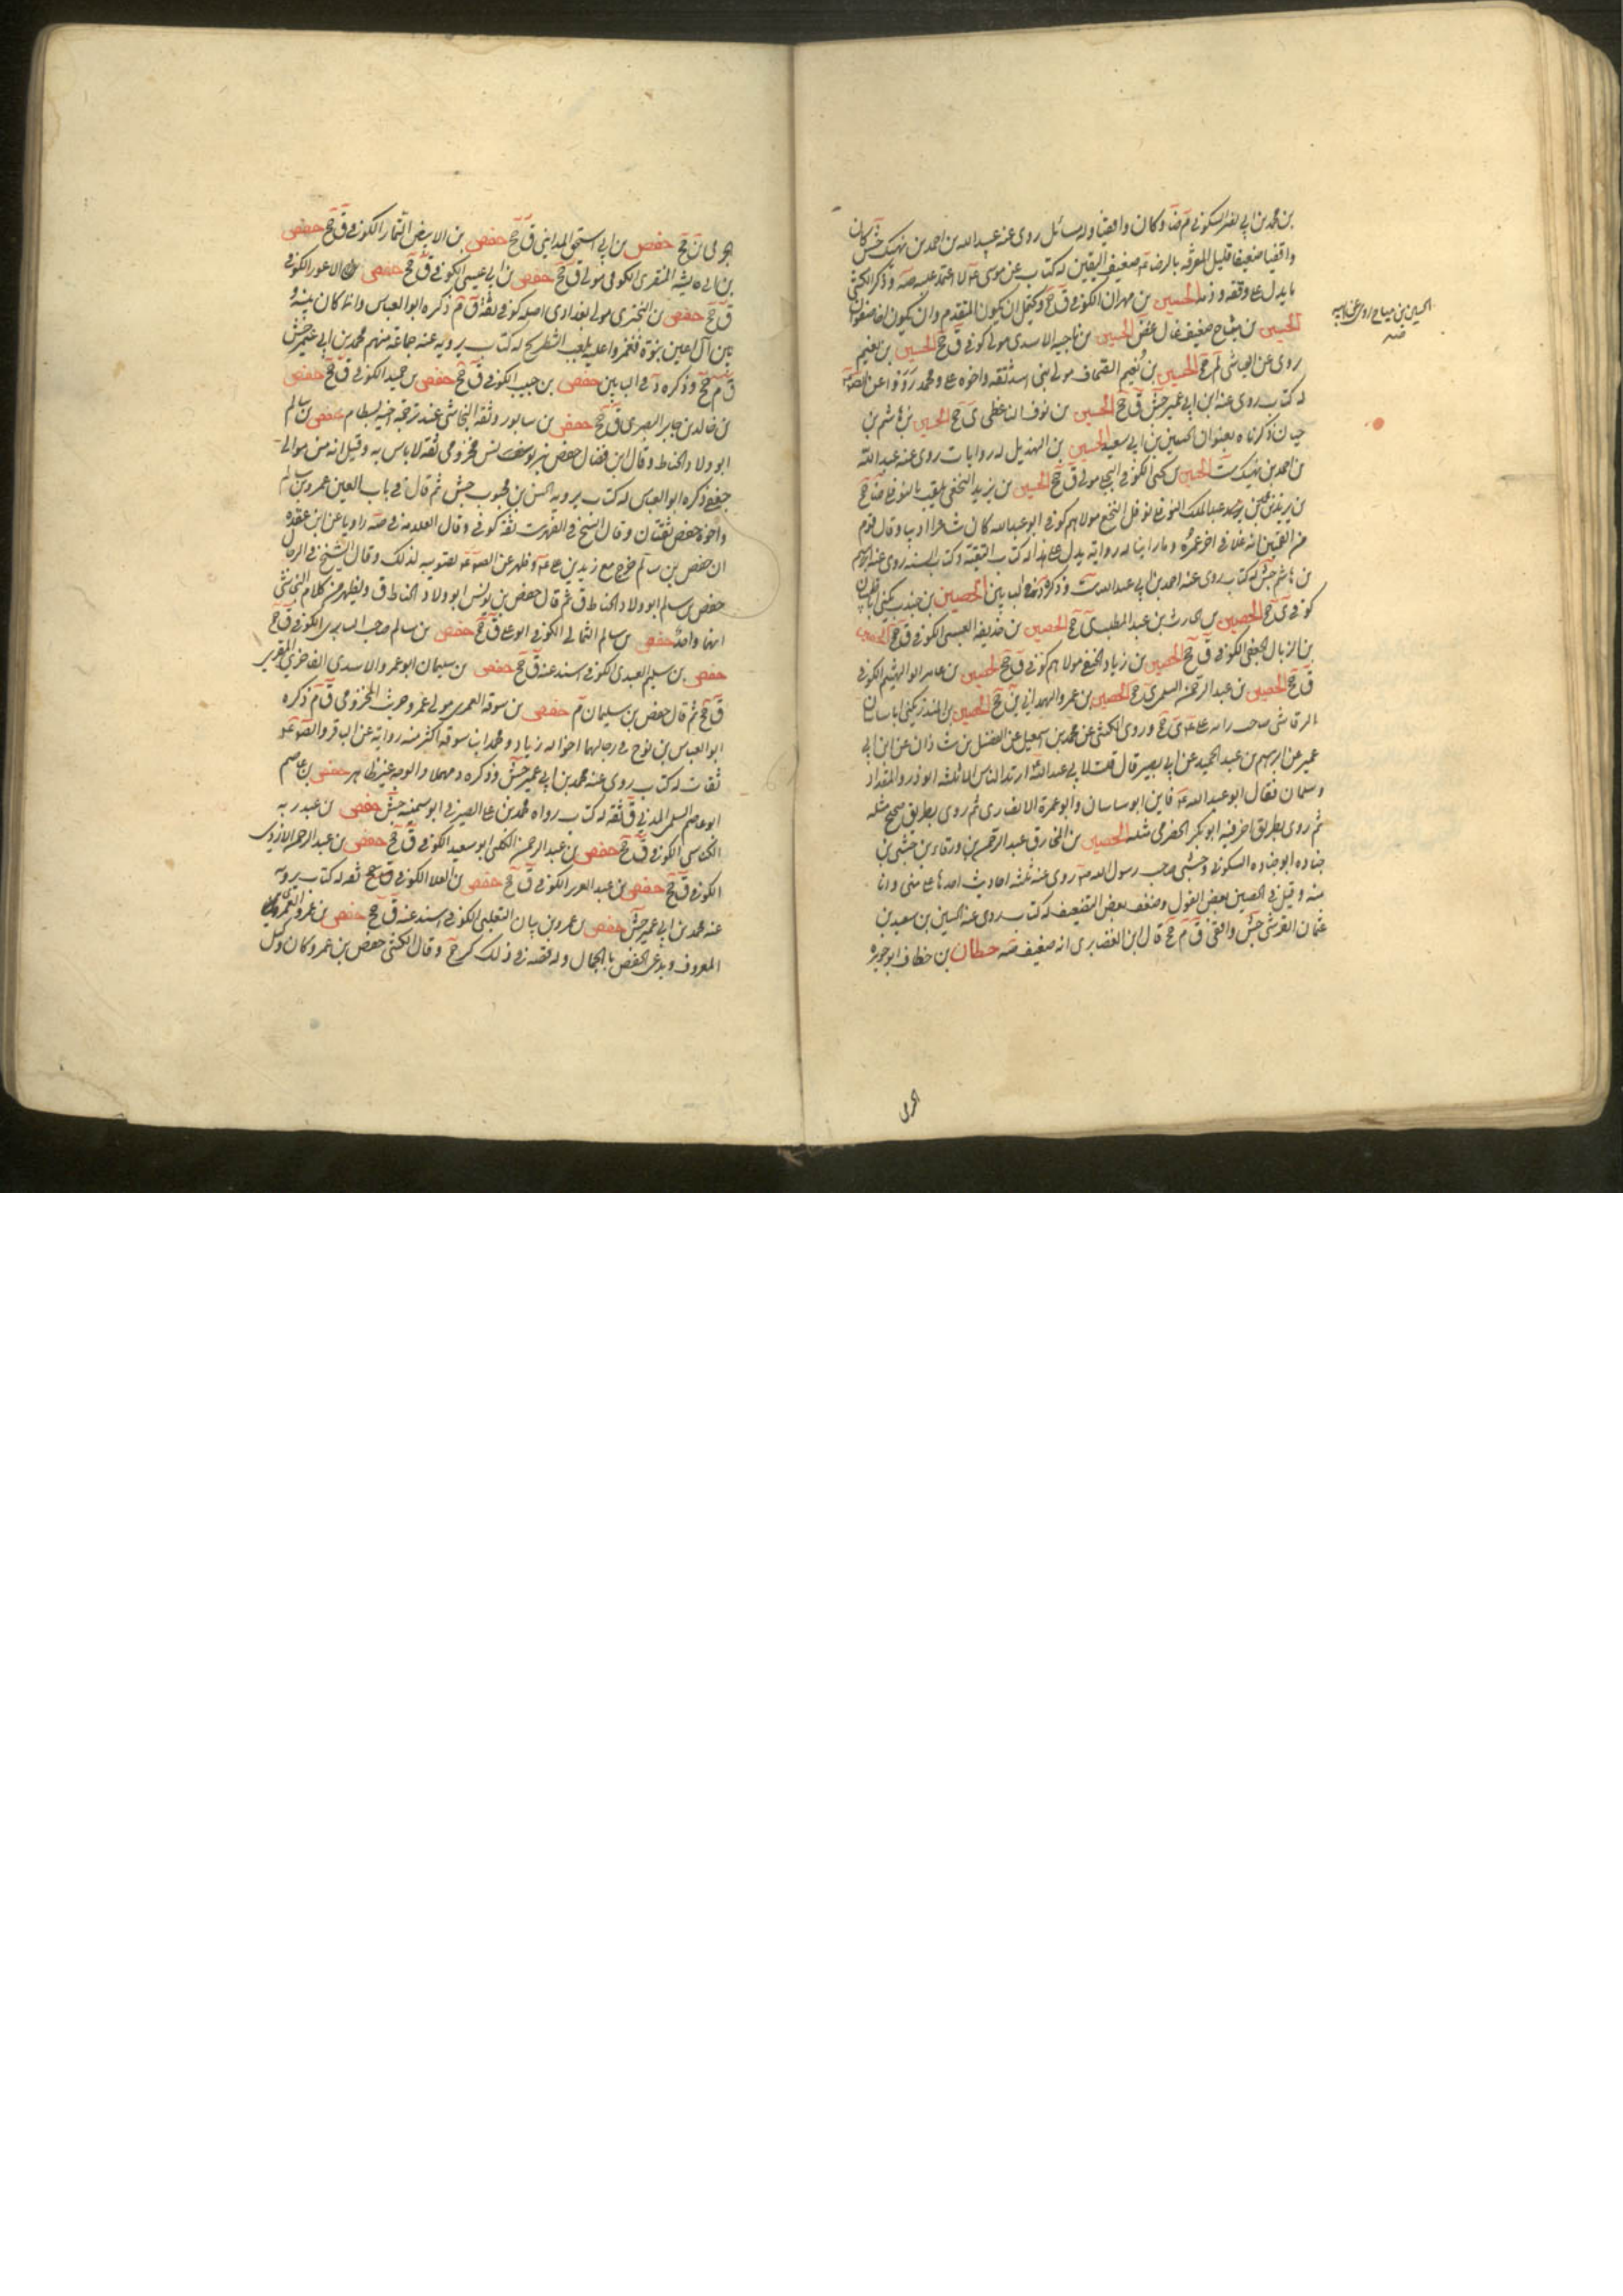 بن محمد بن ابي نصر السكوني م ضا وكان واقفيا وله مسائل روى عنه عبيد الله بن احمد بن نهيك جش كان
واقفيا ضعيفا قليل المعرفة بالرضا ضعيف اليقين له كتاب عن موسى لا اعتمد عليه صه وذكر الكشي
ما يدل على وقفه وذمه الحسين بن مهران الكوفي ق جخ ويحتمل ان يكون المتقدم وان يكون اخا صفوان
الحسين بن مياح ضعيف غال غض الحسين بن ناجيه الاسدي مولى كوفي ق جخ الحسين بن نعيم
روى عن العياشي لم جخ الحسين بن نعيم الصحاف مولى بني اسد ثقه واخوه علي ومحمد رووا عن
له كتاب روى عنه ابن ابي عمير جش ق جخ الحسين بن نوف الناعظي ي جخ الحسين بن هاشم بن
حيان ذكرناه بعنوان الحسين بن ابي سعيد الحسين بن الهذيل له روايات روى عنه عبيد الله
بن احمد بن نهيك ست الحسين بن يحيى الكوفي البجلي مولى ق جخ الحسين بن يزيد النخعي يلقب بالنوفلي ضا جخ
بن يزيد بن محمد بن عبد الملك النوفلي نوفل النخع مولاهم كوفي ابو عبد الله كان شاعرا اديبا وقال قوم
من القميين انه غلا في اخر عمره وما راينا له رواية يدل على هذا له كتاب التقية وكتاب السنة روى عنه ابراهيم
بن هاشم جش له كتاب روى عنه احمد بن ابي عبد الله ست وذكره البابين الحصين بن جندب يكنى ابا ظبيان
كوفي ي جخ الحصين بن الحرث بن عبد المطلب ي جخ الحصين بن حذيفه العبسي الكوفي ق جخ الحصين
بن الزبال الجعفي الكوفي ق جخ الحصين بن زياد الحنفي مولاهم كوفي ق جخ الحصين بن عامر ابو الهيثم الكوفي
ق جخ الحصين بن عبد الرحمن السلمي ي جخ الحصين بن عمرو الهمداني ين جخ الحصين بن المنذر يكنى ابا ساسان
الرقاشي صاحب رايه علي ي جخ وروى الكشي عن محمد بن اسمعيل عن الفضل بن شاذان عن ابن ابي
عمير عن ابرهيم بن عبد الحميد عن ابي بصير قال قلت لابي عبد الله ارتد الناس الا ثلثه ابو ذر والمقداد
وسلمان فقال ابو عبد الله فاين ابو ساسان وابو عمرة الانصاري ثم روى بطريق صحيح مثله
ثم روى بطريق اخر فيه ابو بكر الحضرمي مثله الحصين بن المخارق بن عبد الرحمن بن ورقاء بن حبشي بن
جناده ابو جناده السكوني وحبشي صاحب رسول الله روى عنه ثلثه احاديث احدها علي مني وانا
منه وقيل في الحصين بعض القول وضعف بعض التضعيف له كتاب روى عنه الحسين بن سعيد بن
عثمان القرشي جش واقفي ق م جخ قال ابن الغضايري انه ضعيف صه حطان بن خطاف ابو جويريه
الحسين بن مياح روى عن ابيه
صه
الجرمي
جخ حفص بن ابي اسحق المدايني ق جخ حفص بن الابيض التمار الكوفي ق جخ حفص
بن ابي عايشه المنقري الكوفي مولى ق جخ حفص بن ابي عيسى الكوفي ق جخ حفص الاعور الكوفي
ق جخ حفص بن البختري مولى بغدادي اصله كوفي ثقة ق م ذكره ابو العباس وانما كان بينه و
بين آل اعين نبوة فغمزوا عليه بلعب الشطرنج له كتاب يرويه عنه جماعة منهم محمد بن ابي عمير جش
ق م جخ وذكره في البابين حفص بن حبيب الكوفي ق جخ حفص بن حميد الكوفي ق جخ حفص
بن خالد بن جابر البصري ق جخ حفص بن سابور وثقه النجاشي عند ترجمة اخيه بسطام حفص بن سالم
ابو ولاد الحناط وقال ابن فضال حفص بن يونس مخزومي ثقه لا باس به وقيل انه من موالي
جعفي ذكره ابو العباس له كتاب يرويه الحسن بن محبوب جش ثم قال في باب العين عمر بن سالم
واخوه حفص ثقتان وقال الشيخ في الفهرست ثقة كوفي وقال العلامة في صه راويا عن ابن عقده
ان حفص بن سالم خرج مع زيد بن علي وظهر عن الصادق تصويبه لذلك وقال الشيخ في الرجال
حفص بن سالم ابو ولاد الحناط ق ثم قال حفص بن يونس ابو ولاد الحناط ق ويظهر من كلام النجاشي
انهما واحد حفص بن سالم الثمالي الكوفي ابو علي ق جخ حفص بن سالم صاحب السابري الكوفي ق جخ
حفص بن سليم العبدي الكوفي اسند عنه ق جخ حفص بن سليمان ابو عمرو الاسدي الغاضري المقري
ق جخ ثم قال حفص بن سليمان م حفص بن سوقه العمري مولى عمرو حريث المخزومي ق م ذكره
ابو العباس بن نوح في رجالهما اخواه زياد ومحمد ابنا سوقه اكثر منه رواية عن الباقر والصادق
ثقات له كتاب روى عنه محمد بن ابي عمير جش وذكره د مهملا والوجه غير ظاهر حفص بن عاصم
ابو عاصم السلمي المدني ق ثقه له كتاب رواه محمد بن علي الصيرفي ابو سمينه جش حفص بن عبد ربه
الكناسي الكوفي ق جخ حفص بن عبد الرحمن الكلبي ابو سعيد الكوفي ق جخ حفص بن عبد الرحمن الازدي
الكوفي ق جخ حفص بن عبد العزيز الكوفي ق جخ حفص بن العلا الكوفي ق جخ ثقه له كتاب يرويه
عنه محمد بن ابي عمير جش حفص بن عمرو بن بيان التغلبي الكوفي اسند عنه ق جخ حفص بن عمرو العمري
المعروف ويدعى حفص بالجمال وله قصه في ذلك كر جخ وقال الكشي حفص بن عمرو كان وكيل